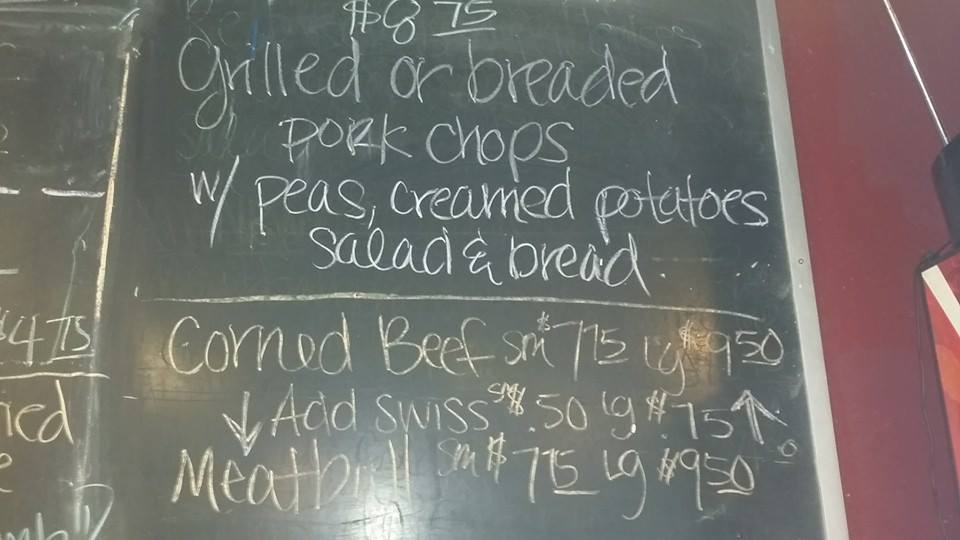 $8 75
Grilled or breaded
pork chops
w/ peas, creamed potatoes
salad & bread
Corned Beef sm $7 75 lg $9 50
↓ Add swiss sm $ .50 lg $ .75 ↑
Meatball sm $ 7 75 lg $9 50
$4 75